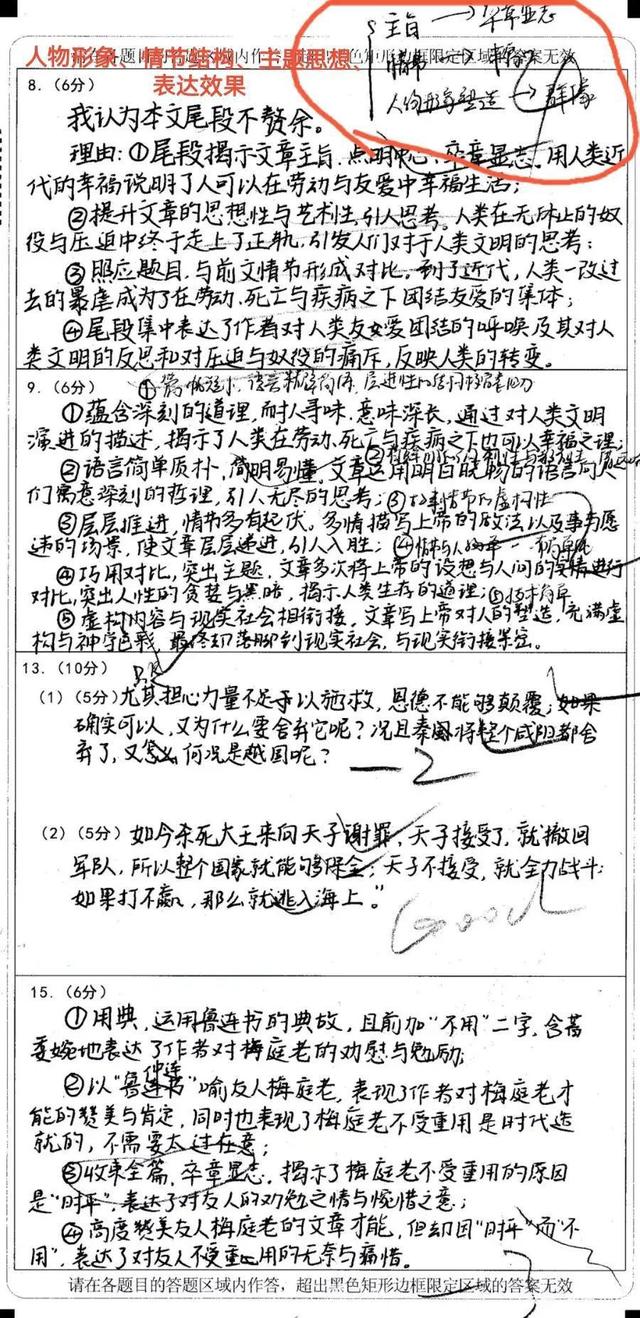 主旨→卒章显志
情节
人物形象塑造→群像
人物形象、情节结构、主题思想、
表达效果
请在各题目的答题区域内作答，超出黑色矩形边框限定区域的答案无效
8.(6分)
我认为本文尾段不赘余。
理由:①尾段揭示文章主旨,点明中心,卒章显志。用人类近
代的幸福说明了人可以在劳动与友爱中幸福生活;
②提升文章的思想性与艺术性,引人思考。人类在无休止的奴
役与压迫中终于走上了正轨,引发人们对于人类文明的思考;
③照应题目,与前文情节形成对比,到了近代,人类一改过
去的暴虐成为了在劳动、死亡与疾病之下团结友爱的集体;
④尾段集中表达了作者对人类友爱团结的呼唤及其对人
类文明的反思和对压迫与奴役的痛斥,反映人类的转变。
9.(6分)
①蕴含深刻的道理,耐人寻味,意味深长,通过对人类文明
演进的描述,揭示了人类在劳动、死亡与疾病之下也可以幸福之理;
②语言简单质朴,简明易懂。文章运用明白晓畅的语言向人
们寓意深刻的哲理,引人无尽的思考;③故事情节的虚构性
③层层推进,情节多有起伏。多情描写上帝的做法以及事与愿
违的场景,使文章层层递进,引人入胜;
④巧用对比,突出主题,文章多次将上帝的设想与人间的实情进行
对比,突出人性的贪婪与黑暗,揭示人类生存的道理;
⑤虚构内容与现实社会相衔接,文章写上帝对人的塑造,充满虚
构与神学色彩,最终却落脚到现实社会,与现实衔接紧密。
13.(10分)
(1)(5分)尤其担心力量不足于以施救,恩德不能够颠覆;如果
确实可以,又为什么要舍弃它呢?况且秦国将整个咸阳都舍
弃了,又怎么何况是越国呢?
-2
(2)(5分)如今杀死大王来向天子谢罪,天子接受了,就撤回
军队,所以整个国家就能够保全;天子不接受,就全力战斗;
如果打不赢,那么就逃入海上。"
Good
15.(6分)
①用典,运用鲁连书的典故,且前加"不用"二字,含蓄
委婉地表达了作者对梅庭老的劝慰与勉励;
②以"鲁仲连"喻友人梅庭老,表现了作者对梅庭老才
能的赞美与肯定,同时也表现了梅庭老不受重用是时代造
就的,不需要太过在意;
③收束全篇,卒章显志,揭示了梅庭老不受重用的原因
是"时平",表达了对友人的劝勉之情与惋惜之意;
④高度赞美友人梅庭老的文章才能,但却因"时平"而"不
用",表达了对友人不受重用的无奈与痛惜。
请在各题目的答题区域内作答,超出黑色矩形边框限定区域的答案无效